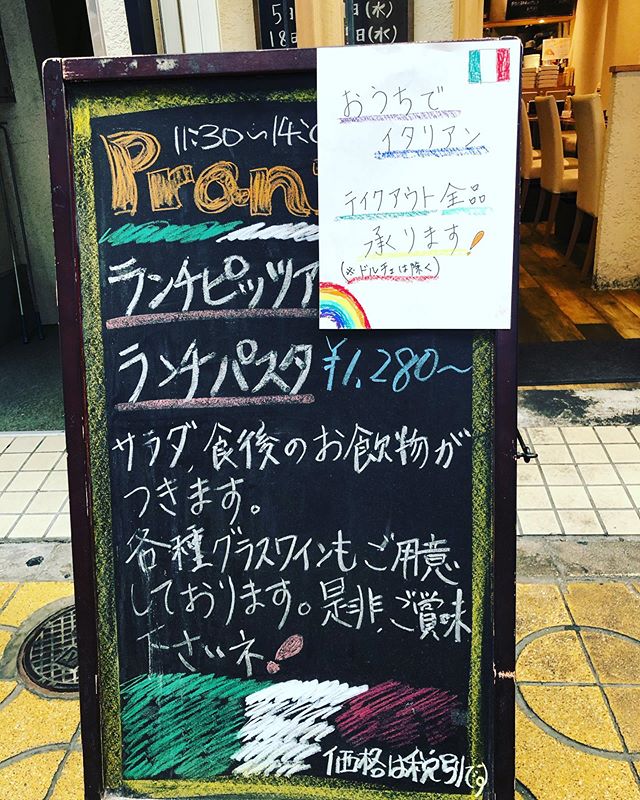 5日 (水)
18日 日(水)
11:30〜14:
Pran
おうちで
イタリアン
テイクアウト全品
承ります!
(※ドルチェは除く)
ランチピッツァ
ランチパスタ ¥1,280〜
サラダ、食後のお飲物が
つきます。
各種グラスワインもご用意
しております。是非、ご賞味
下さいネ!
価格は税別です